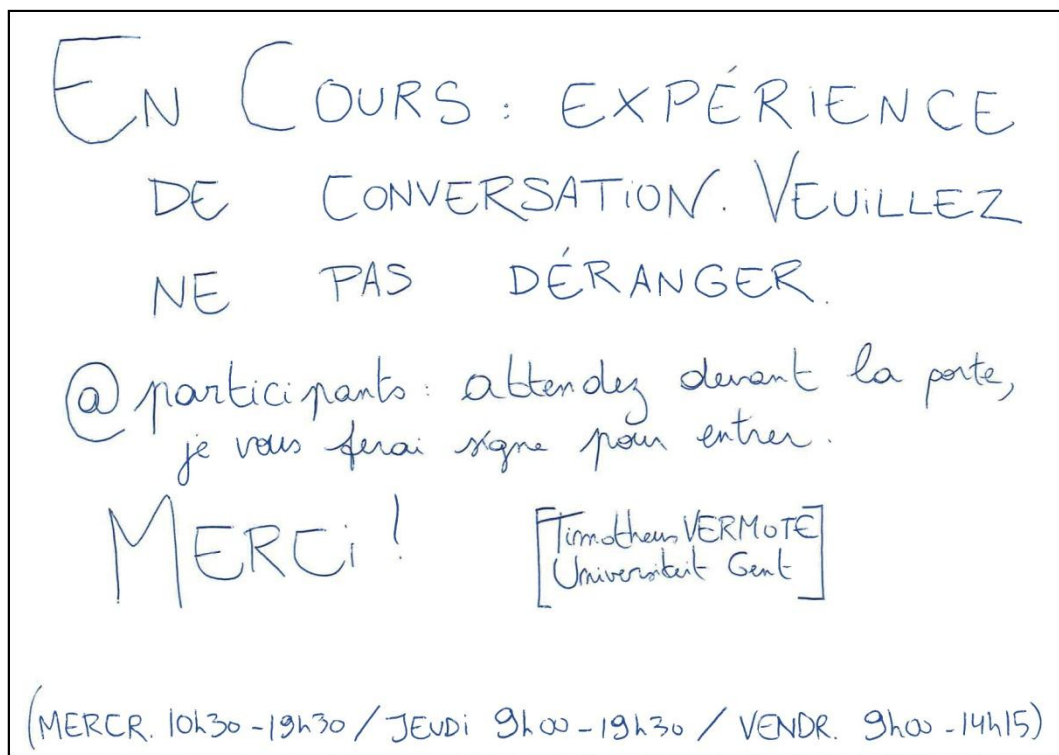 EN COURS : EXPÉRIENCE
DE CONVERSATION. VEUILLEZ
NE PAS DÉRANGER.
@participants : attendez devant la porte,
je vous ferai signe pour entrer.
MERCI !
[Timotheus VERMOTE
Universiteit Gent]
(MERCR. 10h30-19h30 / JEUDI 9h00-19h30 / VENDR. 9h00-14h15)